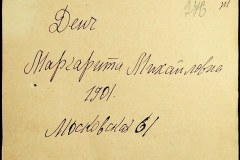 248
Деич
Маргарита Михайловна
1901.
Московская 61